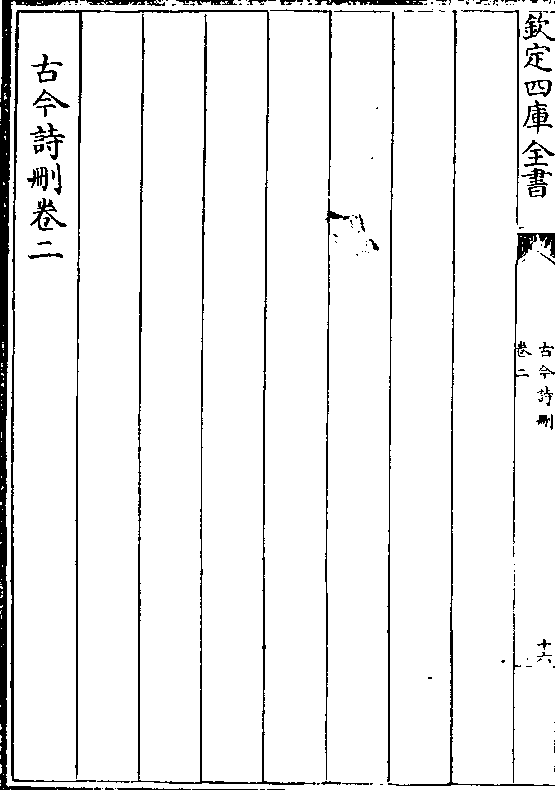 欽定四庫全書
古今詩刪
卷二
十六
古今詩刪卷二